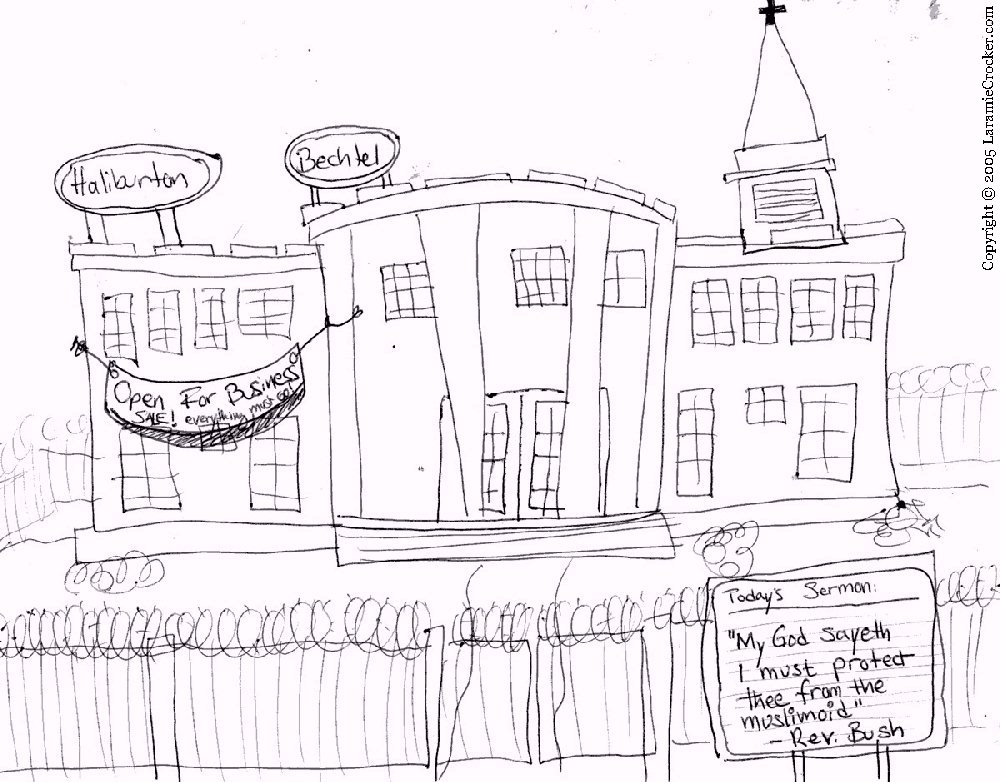 Haliburton
Bechtel
Open For Business
SALE! everything must go!
Today's Sermon:
"My God sayeth
I must protect
thee from the
muslimoid"
- Rev. Bush
Copyright © 2005 LaramieCrocker.com